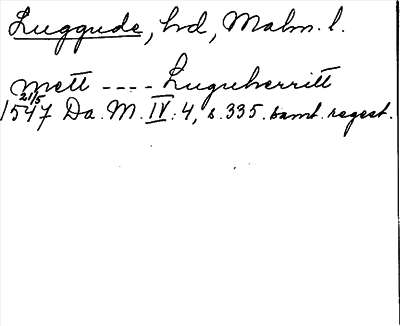 Luggude, hd, Malm. l.
mett ---- Luguherritt
21/5
1547 Da. M. IV: 4, s. 335. samt. regest.